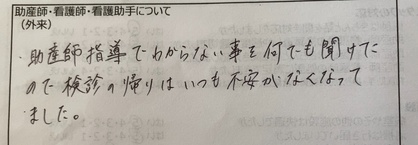 助産師・看護師・看護助手について
(外来)
・助産師指導でわからない事も何でも聞けた
ので検診の帰りはいつも不安がなくなって
ました。